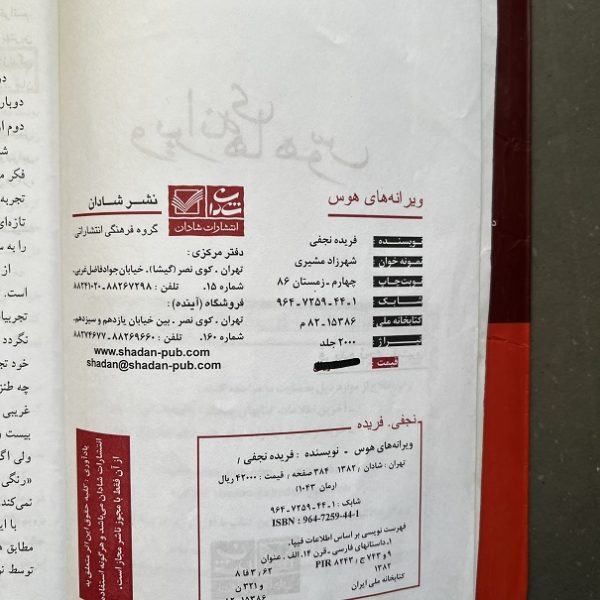 ویرانه‌های هوس
ویرانه‌های هوس
نویسنده : فریده نجفی
نمونه خوان : شهرزاد مشیری
نوبت چاپ : چهارم ـ زمستان ۸۶
شابک : ۱-۴۴-۷۲۵۹-۹۶۴
کتابخانه ملی : ۱۵۳۸۶-۸۲م
تیراژ : ۲۰۰۰ جلد
قیمت :
شادان
انتشارات شادان
نشر شادان
گروه فرهنگی انتشاراتی
دفتر مرکزی:
تهران ـ کوی نصر (گیشا)، خیابان جوادفاضل غربی،
شماره ۱۵. تلفن : ۸۸۲۶۷۲۹۸ - ۸۸۲۴۱۰۲۰
فروشگاه (آینده):
تهران ـ کوی نصر ـ بین خیابان یازدهم و سیزدهم،
شماره ۱۶۰. تلفن : ۸۸۲۶۹۶۶۰ - ۸۸۲۷۴۶۷۷
www.shadan-pub.com
shadan@shadan-pub.com
نجفی، فریده
ویرانه‌های هوس ـ نویسنده : فریده نجفی /
تهران: شادان / ۱۳۸۲ / ۳۸۴ صفحه / قیمت : ۴۲۰۰۰ ریال
(رمان ۱۰۴۳)
شابک : ۱-۴۴-۷۲۵۹-۹۶۴
ISBN : 964-7259-44-1
فهرست نویسی بر اساس اطلاعات فیپا.
۱. داستانهای فارسی ـ قرن ۱۴. الف. عنوان
۹ و ۷۲۳ ج / PIR ۸۲۴۳ ۳,۶۲ فا ۸
۱۳۸۲ و ۳۲۱ ن
کتابخانه ملی ایران ۱۵۳۸۶-۸۲م
یادآوری : کلیه حقوق این اثر متعلق به
انتشارات شادان می‌باشد و هرگونه استفاده
از آن فقط با مجوز ناشر مجاز است.
در
دوبار
دوم از
فکر م
تجربه
تازه‌ای
را به س
از
است.
تجربیات
نگردد
خرد تج
چه طنز
غریبی
بیست و
ولی اگ
«رنگی
نمی‌کند
با این
مطابق ه
توسط ن